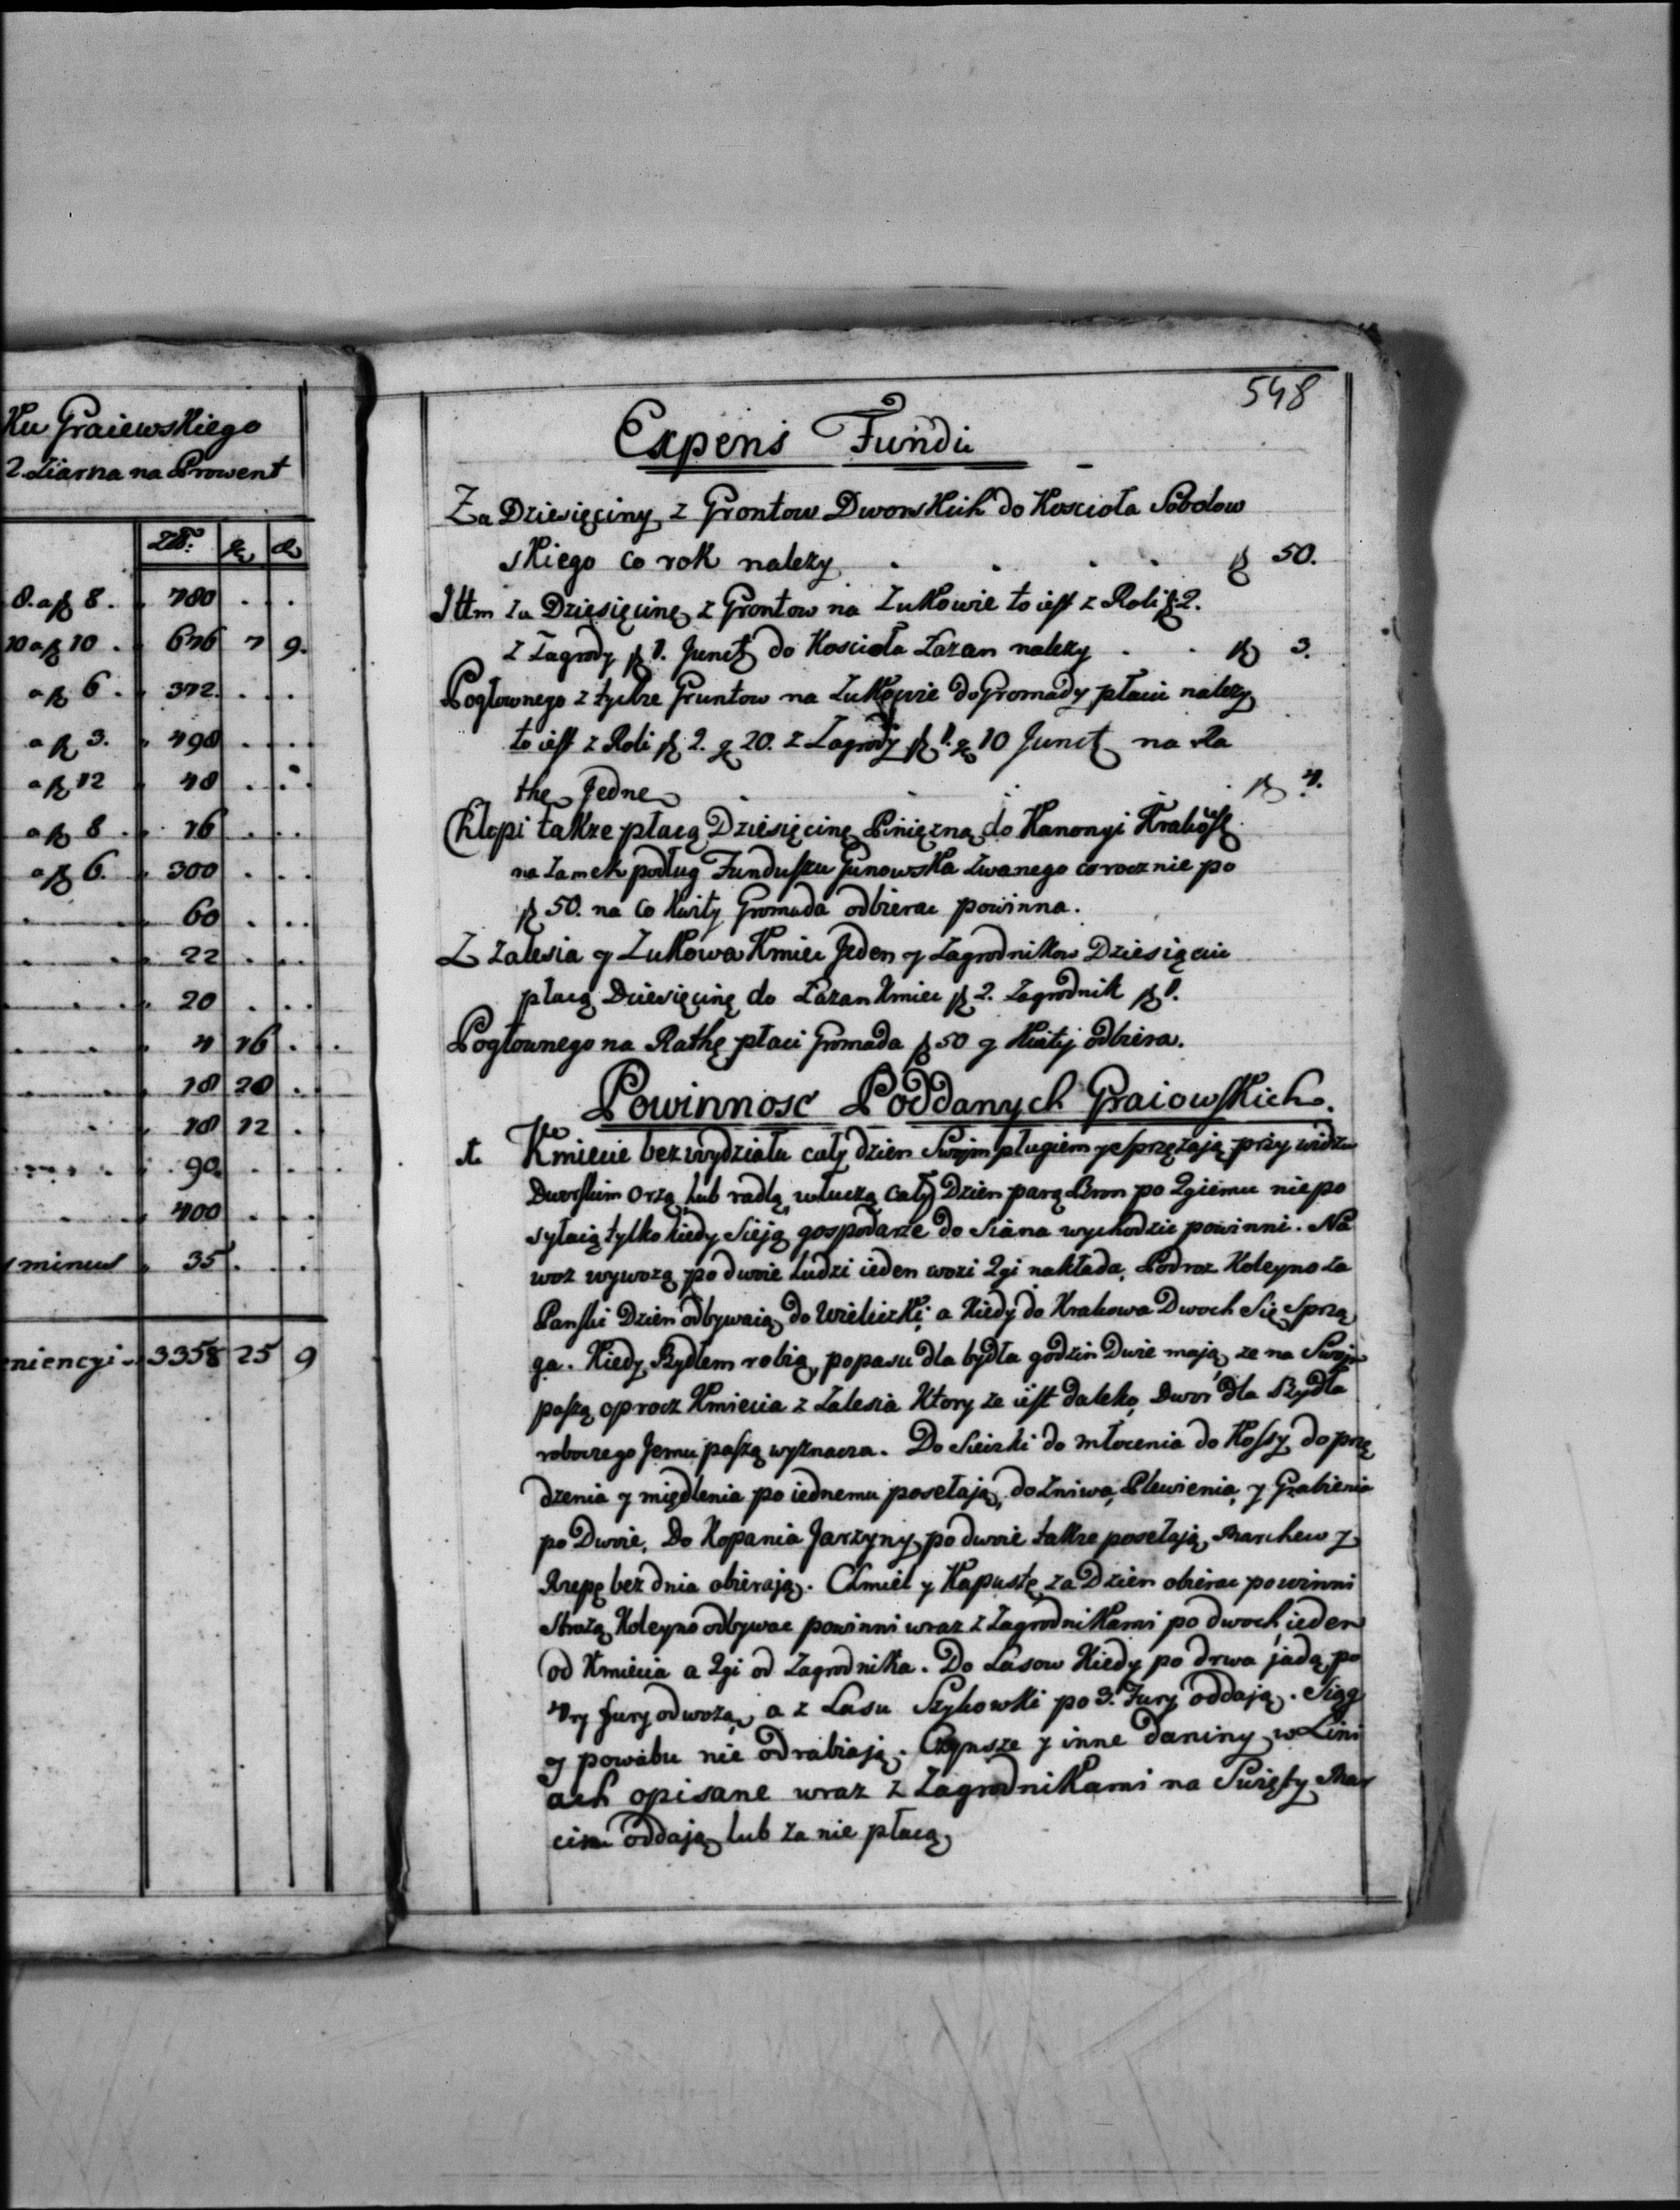 Ku Graiewskiego
2. Ziarna na Prowent
Zł: g d
8. a f 8. 780 . .
10 a f 10 . 676 7 9.
a f 6 . 372 . .
a f 3. 498 . .
a f 12 48 . .
a f 8 . 16 . .
a f 6. 300 . .
60 . .
22 . .
20 . .
4 16 .
18 20 .
18 12 .
90 . .
400 . .
minus 35 . .
niencyi 3358 25 9
548
Expens Fundi
Za Dziesięciny z Grontow Dworskich do Koscioła Sobolow
skiego co rok nalezy . . . . f 50.
Ittm za Dziesięcinę z Grontow na Zukowie to iest z Roli f 2.
z Zagrody f 1. Junct do Koscioła Łazan nalezy . . f 3.
Pogłownego z tychze Gruntow na Zukowie do Gromady płacic nalezy
to iest z Roli f 2. g 20. z Zagrody f 1. g 10 Junct na Ra
thę Jednę . . . . f 4.
Chłopi takze płacą Dziesięcinę Pinięzną do Kanonyi Krakows
na Zamek podług Funduszu Gunowska zwanego corocznie po
f 50. na co kwity Gromada odbierac powinna.
Z Zalesia y Zukowa Kmiec Jeden y Zagrodnikow Dziesięciu
płacą Dziesięcinę do Łazan Kmiec f 2. Zagrodnik f 1.
Pogłownego na Rathę płaci Gromada f 50 y Kwity odbiera.
Powinnosc Poddanych Graiowskich.
1. Kmiecie bez wydziału cały dzien Swoim pługiem y sprzęzaią przy widzu
Dworskim orzą lub radlą, włuczą cały Dzien parą Bron po 2giemu niepo
syłaią tylko kiedy Sieją gospodarze do Siana wychodzic powinni. Na
woz wywozą po dwoie Ludzi ieden wozi 2gi nakłada, Podroz Koleyno za
Panski Dzien odbywaią do Wieliczki, a Kiedy do Krakowa Dwoch Się Sprzę
ga. Kiedy Bydłem robią, popasu dla bydła godzin Dwie mają, ze na Swojn
paszą oprocz Kmiecia z Zalesia Ktory ze iest daleko, Dwor dla Bydła
roboczego Jemu paszą wyznacza. Do Sieczki do młocenia do Kossy do przę
dzenia y międlenia po iednemu posełaią, do Zniwa, Plewienia, y Grabienia
po Dwoie, Do Kopania Jarzyny po dwoie takze posełają, Marchew y
Rzepę bez dnia obierają. Chmiel y Kapustę za Dzien obierac powinni
Strozą Koleyno odbywac powinni wraz z Zagrodnikami po dwoch, ieden
od Kmiecia a 2gi od Zagrodnika. Do Lasow Kiedy po drwa jadą, po
4ry fury odwozą, a z Lasu Szykowki po 3. Fury oddają. Siąg
y powabu nie odrabiają. Czynsze y inne daniny w Lini
ach opisane wraz z Zagrodnikami na Swięty Mar
cin oddają lub za nie płacą,